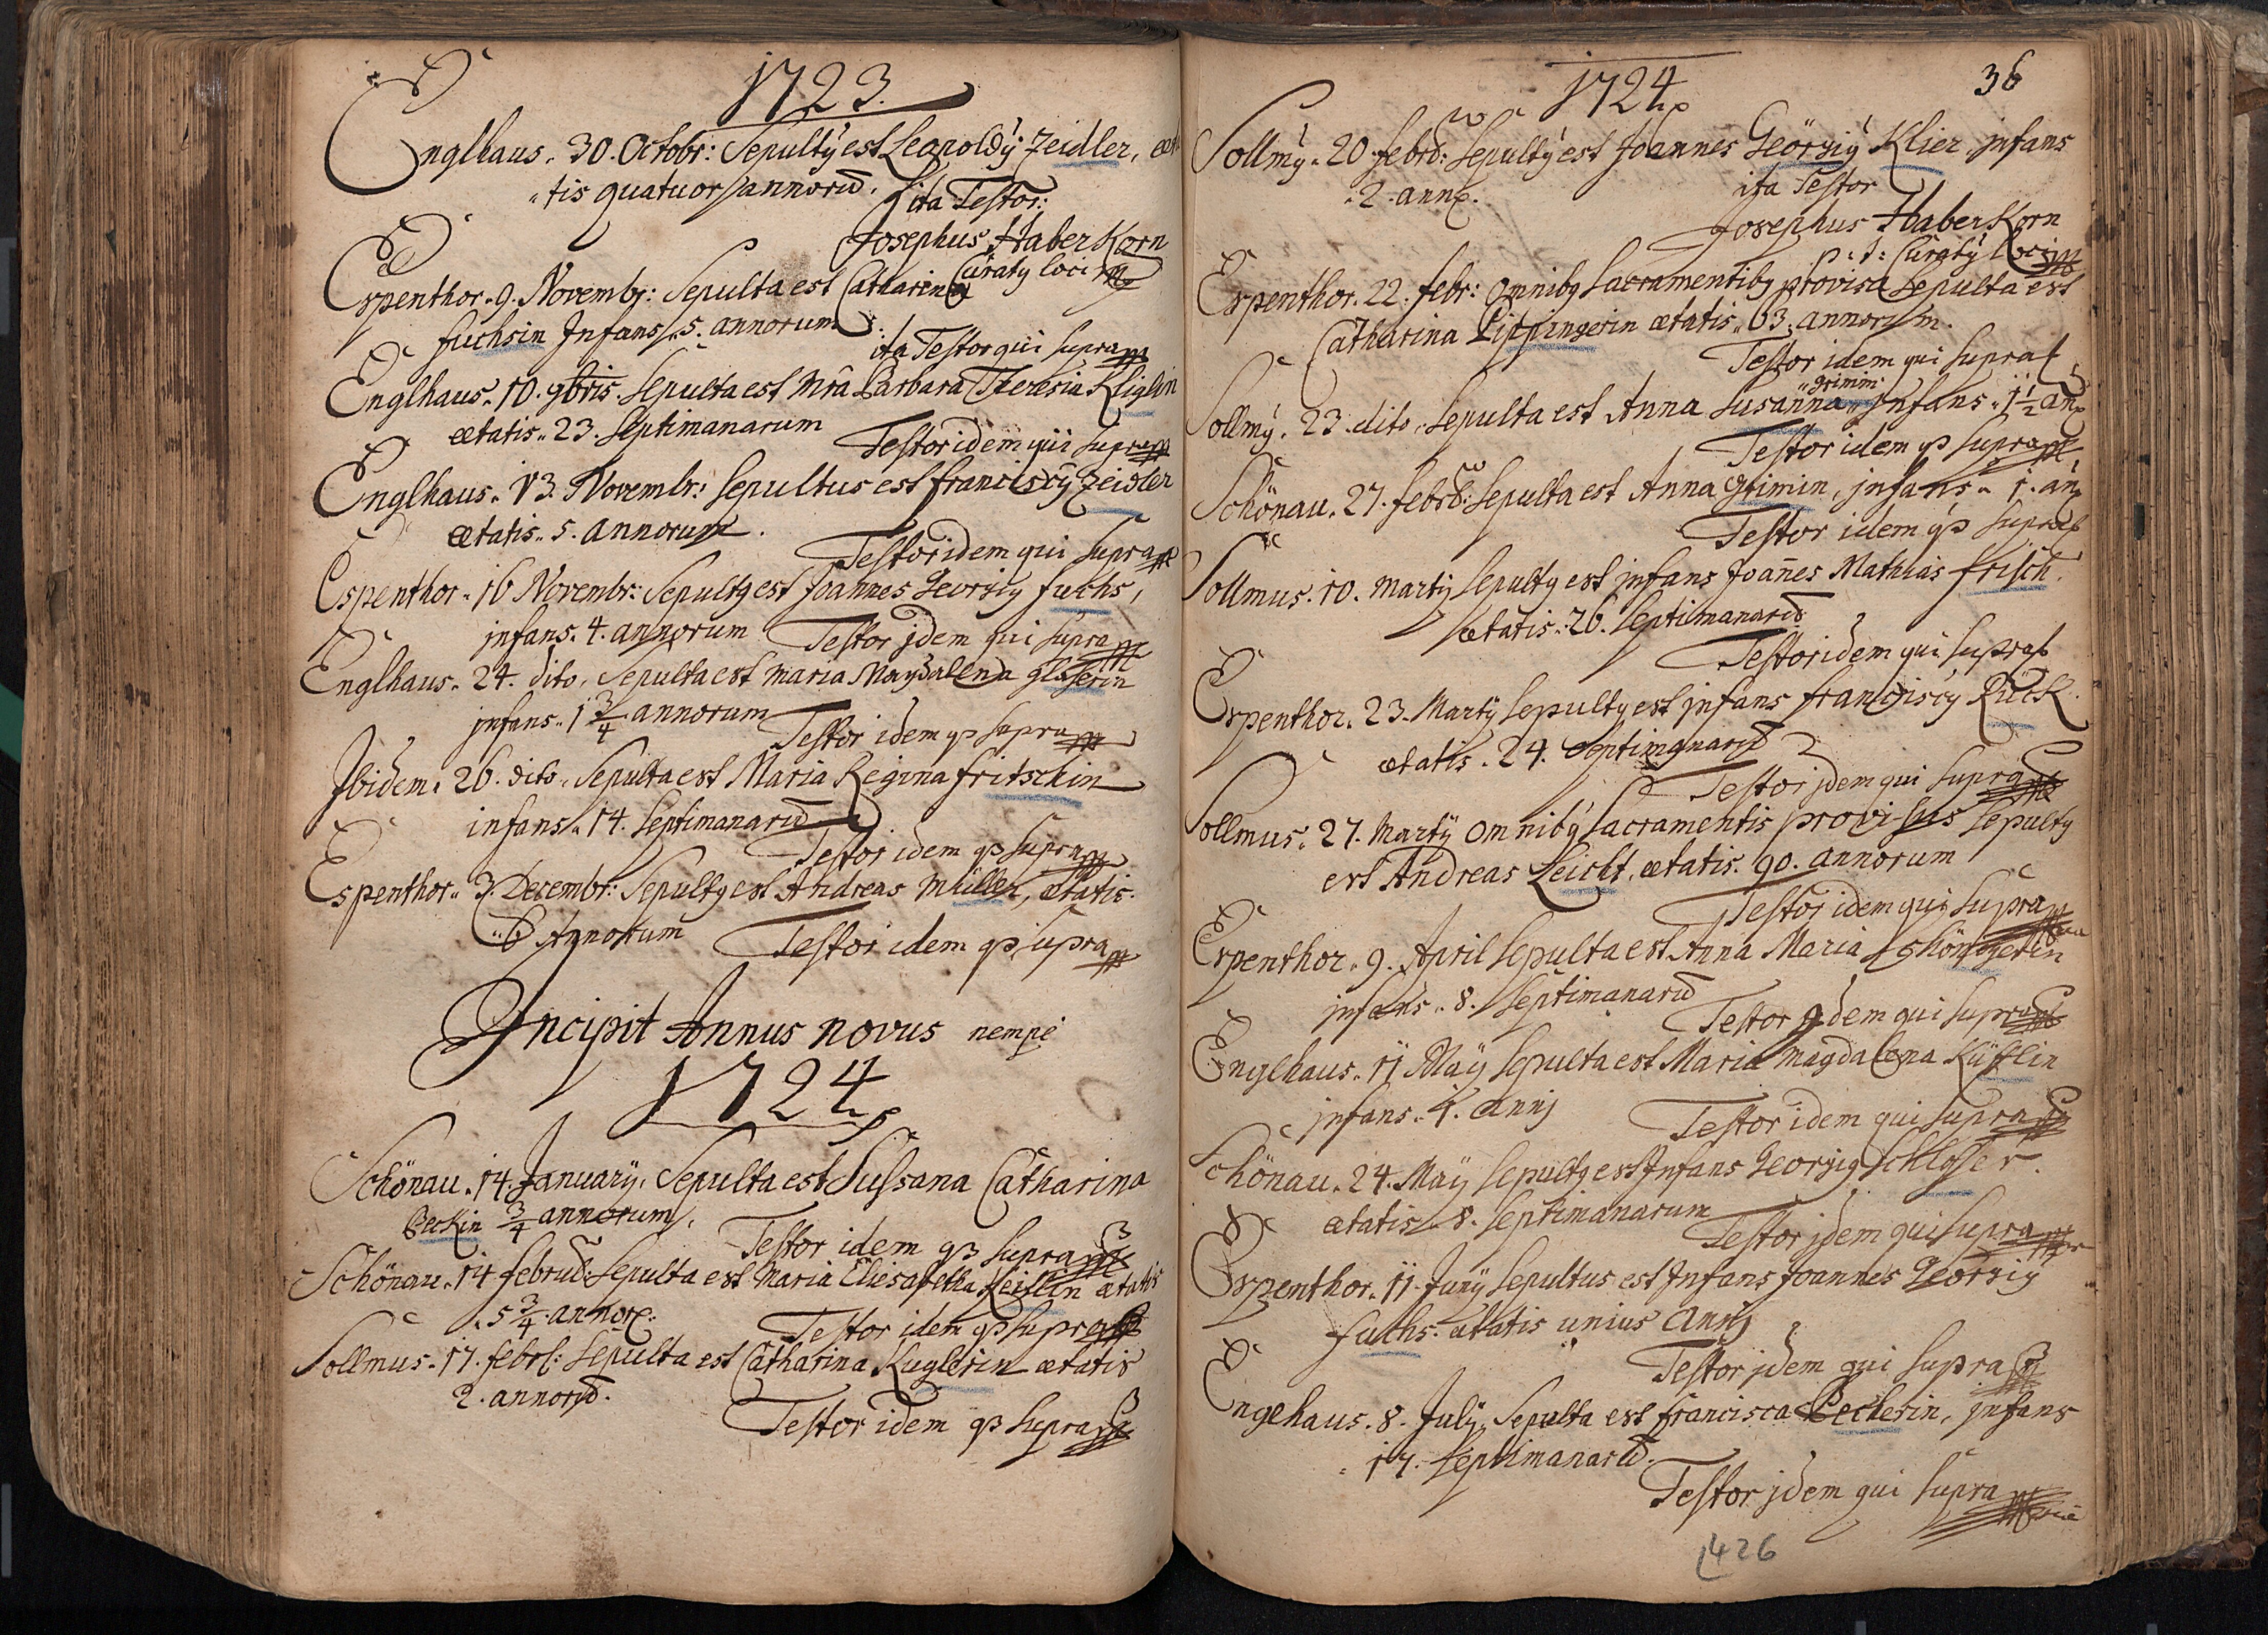 1723.
Englhaus. 30. Octobr: Sepultꝰ est Leopoldꝰ Zeidler, æta
tis quatuor annorum.
ita Testor:
Josephus Haberkorn
Curatꝰ loci
Espenthor. 9. Novembr: Sepulta est Catharina
fuchsin Infans. 5. annorum.
ita Testor qui supra
Englhaus. 10. 9bris. Sepulta est Barbara Theresia
ætatis. 23. Septimanarum
Testor idem qui supra
Englhaus. 13. Novembr: Sepultus est franciscꝰ Zeidler
ætatis. 5. annorum.
Testor idem qui supra
Espenthor. 16 Novembr: Sepultꝰ est Joannes Georgiꝰ fuchs,
infans. 4. annorum
Testor jdem qui supra
Englhaus. 24. dito, Sepulta est Maria Magdalena glaserin
jnfans. 1 3/4 annorum
Testor idem qꝫ supra
Jbidem. 26. dito. Sepulta est Maria Regina fritschin
infans. 14. Septimanarum
Testor idem qꝫ supra
Espenthor. 3. Decembr: Sepultꝰ est Andreas Müller, ætatis.
6 Annorum
Testor idem qꝫ supra
Incipit Annus novus nempe
1724
Schönau. 14. January, Sepulta est Sussana Catharina
Beckin 3/4 annorum.
Testor idem qꝫ supra
Schönau. 14 febru: Sepulta est Maria Eliesabetha ætatis
5 3/4 annor.
Testor idem qꝫ supra
Sollmus. 17. febr: Sepulta est Catharina Kuglerin ætatis
2. annorum.
Testor idem qꝫ supra
1724
36
Sollmꝰ. 20. febr: Sepultꝰ est Joannes Geörgiꝰ Klier, jnfans
2. ann.
ita Testor
Josephus Haberkorn
p: t: Curatꝰ loci
Espenthor. 22. febr: Omnibꝰ Sacramentibꝰ provisa Sepulta est
Catharina Lippingerin ætatis. 63. annorum.
Testor idem qui supra
grimin
Sollmꝰ. 23. dito, Sepulta est Anna Susanna, jnfans. 1 1/2 an
Testor idem qꝫ supra
Schönau. 27. febr: Sepulta est Anna Grimin, jnfans. 1. an
Testor idem qꝫ supra
Sollmus. 10. Martÿ Sepultꝰ est jnfans Joañes Mathias frisch.
ætatis. 26. Septimanarum
Testor idem qui supra
Espenthor. 23. Martÿ Sepultꝰ est jnfans franciscꝰ Rück.
ætatis. 24. Septimanarum
Testor jdem qui supra
Sollmus. 27. Martÿ Omnibꝰ Sacramentis provisus Sepultꝰ
est Andreas Leicht, ætatis. 90. annorum
Testor idem qui supra
Espenthor. 9. April Sepulta est Anna Maria
jnfans. 8. Septimanarum
Testor jdem qui supra
Englhaus. 11 Maÿ Sepulta est Maria Magdalena
jnfans. 1. annj
Testor idem qui supra
Schönau. 24. Maÿ Sepultꝰ est Jnfans Georgiꝰ Schlosser.
ætatis. 8. Septimanarum
Testor jdem qui supra
Espenthor. 11. Junÿ Sepultus est Jnfans Joannes Georgiꝰ
fuchs. ætatis unius annj
Testor jdem qui supra
Englhaus. 8. Julÿ, Sepulta est francisca Becherin, jnfans
17. Septimanarum.
Testor jdem qui supra
1426